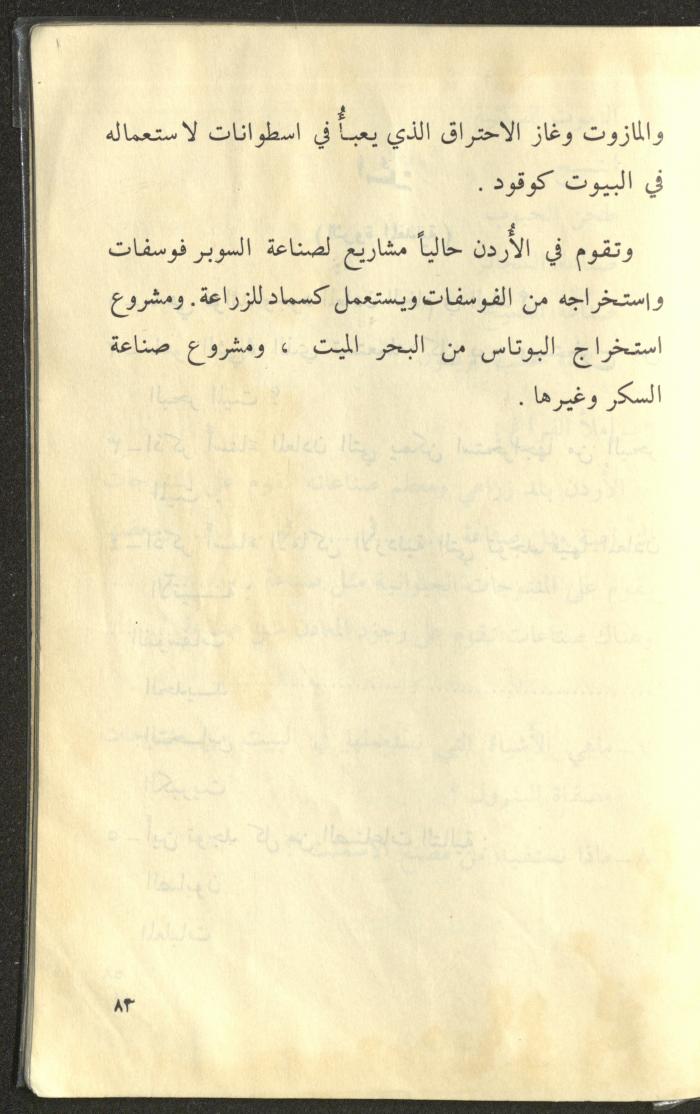 والمازوت وغاز الاحتراق الذي يعبـأُ في اسطوانات لاستعماله
في البيوت كوقود .
وتقوم في الأُردن حالياً مشاريع لصناعة السوبر فوسفات
واستخراجه من الفوسفات ويستعمل كسماد للزراعة . ومشروع
استخراج البوتاس من البحر الميت ، ومشروع صناعة
السكر وغيرها .
٨٣